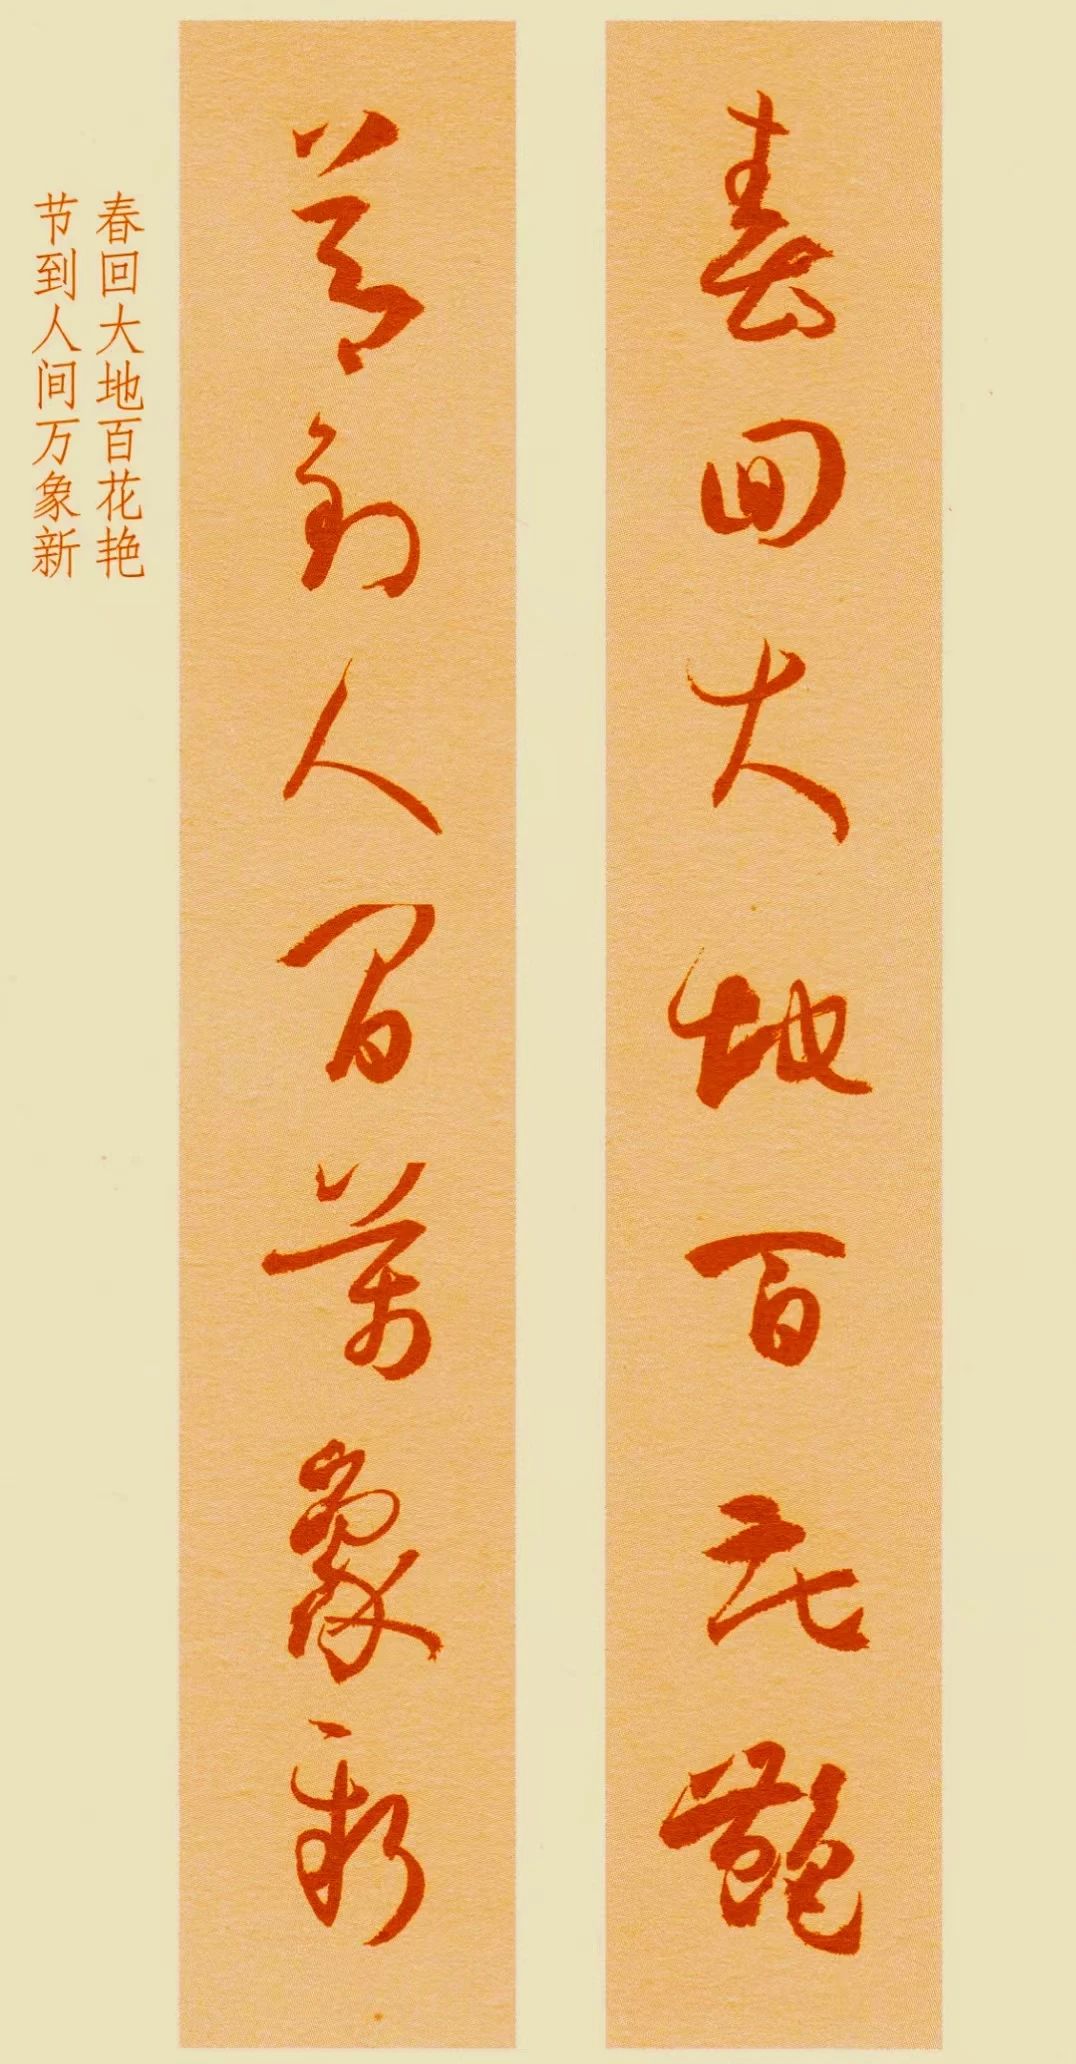 春回大地百花艳
节到人间万象新
春回大地百花艳
节到人间万象新